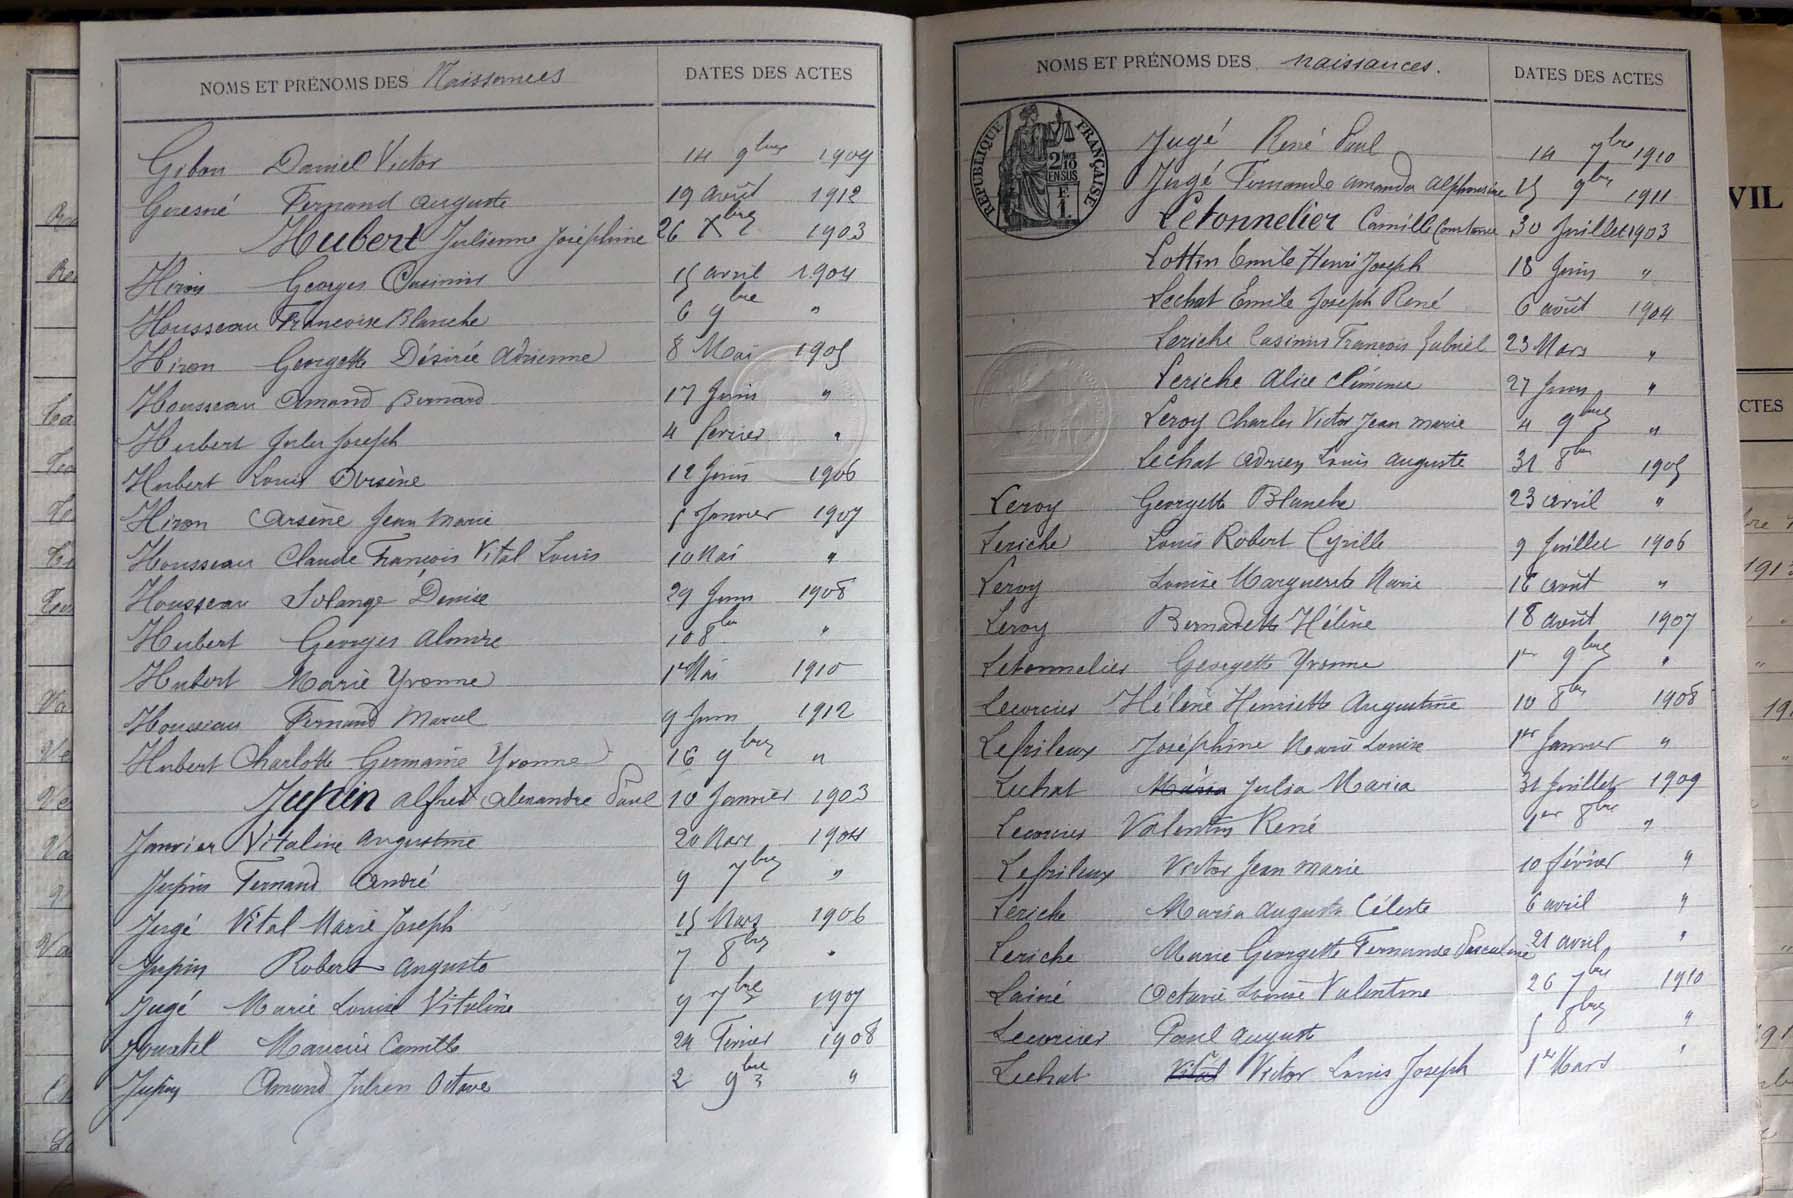 NOMS ET PRÉNOMS DES Naissances DATES DES ACTES
Gibon Daniel Victor 14 9bre 1909
Guesné Fernand Auguste 19 août 1912
Hubert Julienne Joséphine 26 Xbre 1903
Hiron Georges Casimir 15 avril 1904
Housseau Françoise Blanche 6 9bre "
Hiron Georgette Désirée Adrienne 8 Mai 1905
Housseau Amand Bernard 17 Juin "
Hubert Jules Joseph 4 février "
Hubert Louis Arsène 12 Juin 1906
Hiron Arsène Jean Marie 5 Janvier 1907
Housseau Claude François Vital Louis 10 Mai "
Housseau Solange Denise 29 Juin 1908
Hubert Georges Almire 10 8bre "
Hubert Marie Yvonne 1er Mai 1910
Housseau Fernand Marcel 9 Juin 1912
Hubert Charlotte Germaine Yvonne 16 9bre "
Jupin Alfred Alexandre Paul 10 Janvier 1903
Janvier Vitaline Augustine 20 Mars 1904
Jupin Fernand André 9 7bre "
Jugé Vital Marie Joseph 15 Mars 1906
Jupin Robert Auguste 7 8bre "
Jugé Marie Louise Vitaline 9 7bre 1907
Jouatel Maurice Camille 24 Février 1908
Jupin Amand Julien Octave 2 9bre "
NOMS ET PRÉNOMS DES naissances. DATES DES ACTES
RÉPUBLIQUE FRANÇAISE
2/10 EN SUS
F
1.
Jugé René Paul 14 7bre 1910
Jugé Fernande Amanda Alphonsine 15 9bre 1911
Letonnelier Camille Constance 30 Juillet 1903
Lottin Emile Henri Joseph 18 Juin "
Lechat Emile Joseph René 6 août 1904
Leriche Casimir François Gabriel 23 Mars "
Leriche Alice Clémence 27 Juin "
Leroy Charles Victor Jean Marie 4 9bre "
Lechat Adrien Louis Auguste 31 8bre 1905
Leroy Georgette Blanche 23 avril "
Leriche Louis Robert Cyrille 9 Juillet 1906
Leroy Louise Marguerite Marie 16 août "
Leroy Bernadette Hélène 18 août 1907
Letonnelier Georgette Yvonne 1er 9bre "
Lecorcier Hélène Henriette Augustine 10 8bre 1908
Lefrileux Joséphine Marie Louise 1er Janvier "
Lechat Maria Julia Maria 31 Juillet 1909
Lecorcier Valentin René 1er 8bre "
Lefrileux Victor Jean Marie 10 février "
Leriche Maria Augusta Céleste 6 avril "
Leriche Marie Georgette Fernande Pascaline 21 avril "
Lainé Octavie Louise Valentine 26 7bre 1910
Lecorcier Paul Auguste 5 8bre "
Lechat Vital Victor Louis Joseph 1er Mars "
VIL
CTES